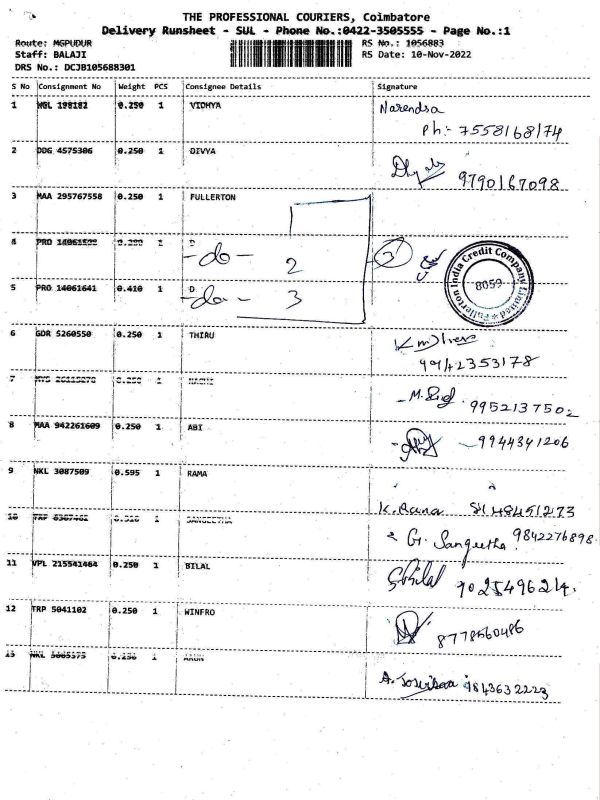 THE PROFESSIONAL COURIERS, Coimbatore
Delivery Runsheet - SUL - Phone No.:0422-3505555 - Page No.:1
Route: MGPUDUR RS No.: 1056883
Staff: BALAJI RS Date: 10-Nov-2022
DRS No.: DCJB105688301
S No Consignment No Weight PCS Consignee Details Signature
1 WGL 198182 0.250 1 VIDHYA Narendra
Ph:- 7558168174
2 DDG 4575306 0.250 1 DIVYA
9790167098
3 MAA 295767558 0.250 1 FULLERTON
4 PRO 1 D
-do- 2 3
Fullerton India Credit Company Limited
8059
5 PRO 14061641 0.410 1 D
-do- 3
6 GDR 5260550 0.250 1 THIRU
9942353178
7 1
9952137502
8 MAA 942261609 0.250 1 ABI
9944341206
9 NKL 3087509 0.595 1 RAMA
K. Rama
10 SANGEETHA
G. Sangeetha 9842276898
11 VPL 215541464 0.250 1 BILAL
9025496214.
12 TRP 5041102 0.250 1 WINFRO
8778560486
13 NKL 1 ARUN
9843632223